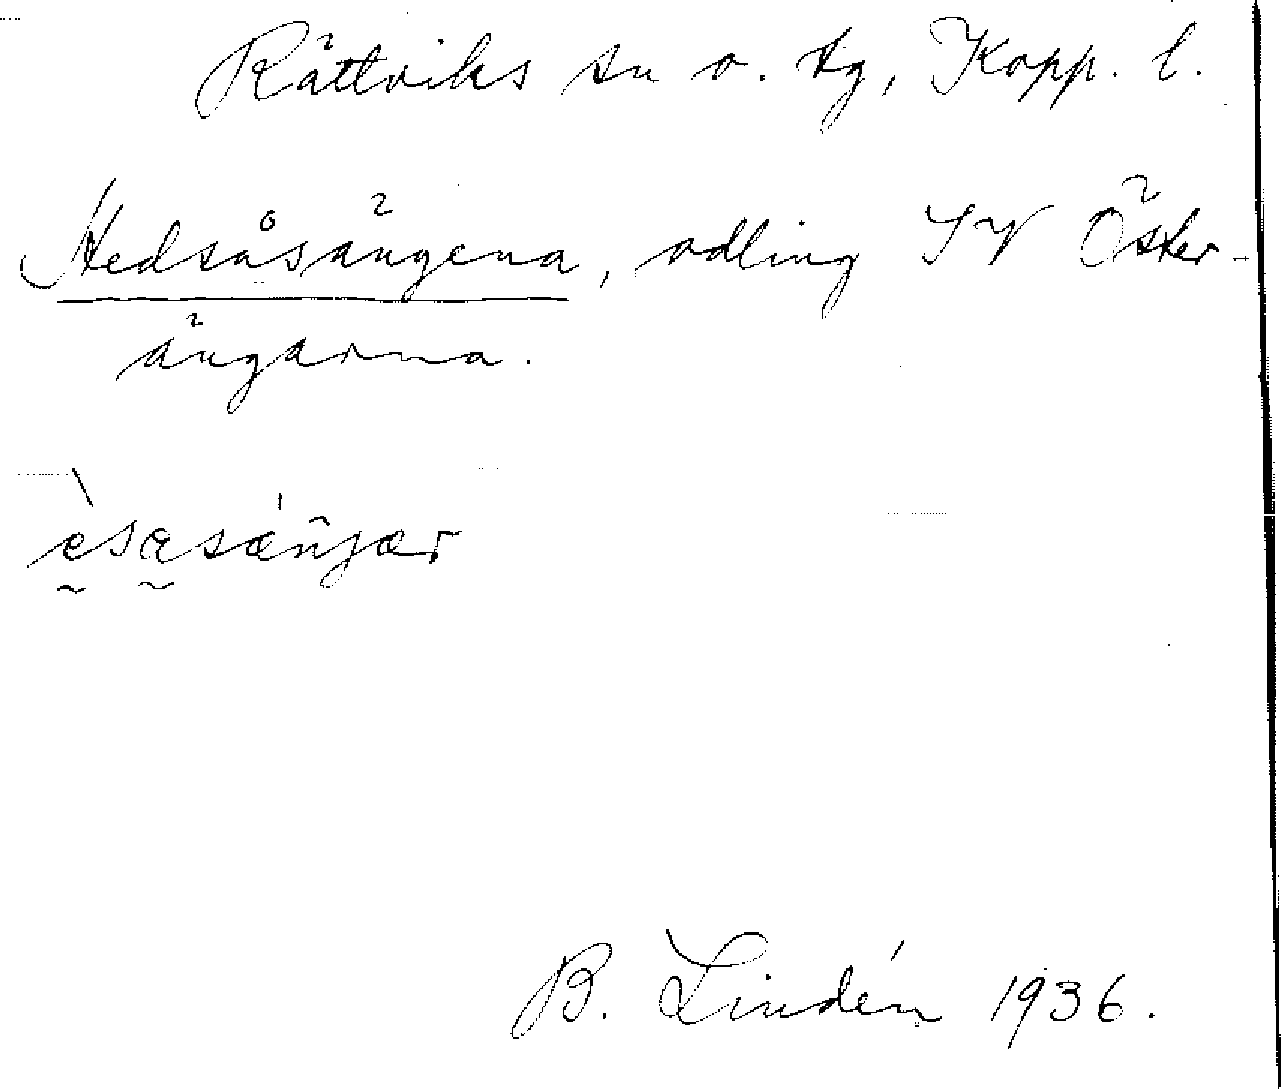 Rättviks sn o. tg, Kopp. l.
Hedsåsängena, odling SV Öster-
ängarna.
B. Lindén 1936.